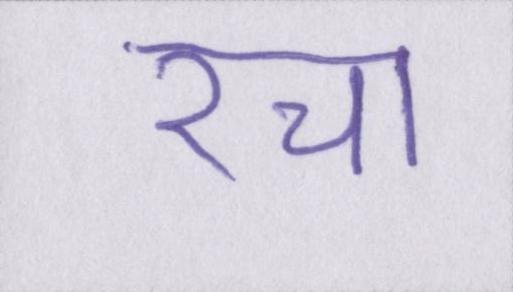 रचा